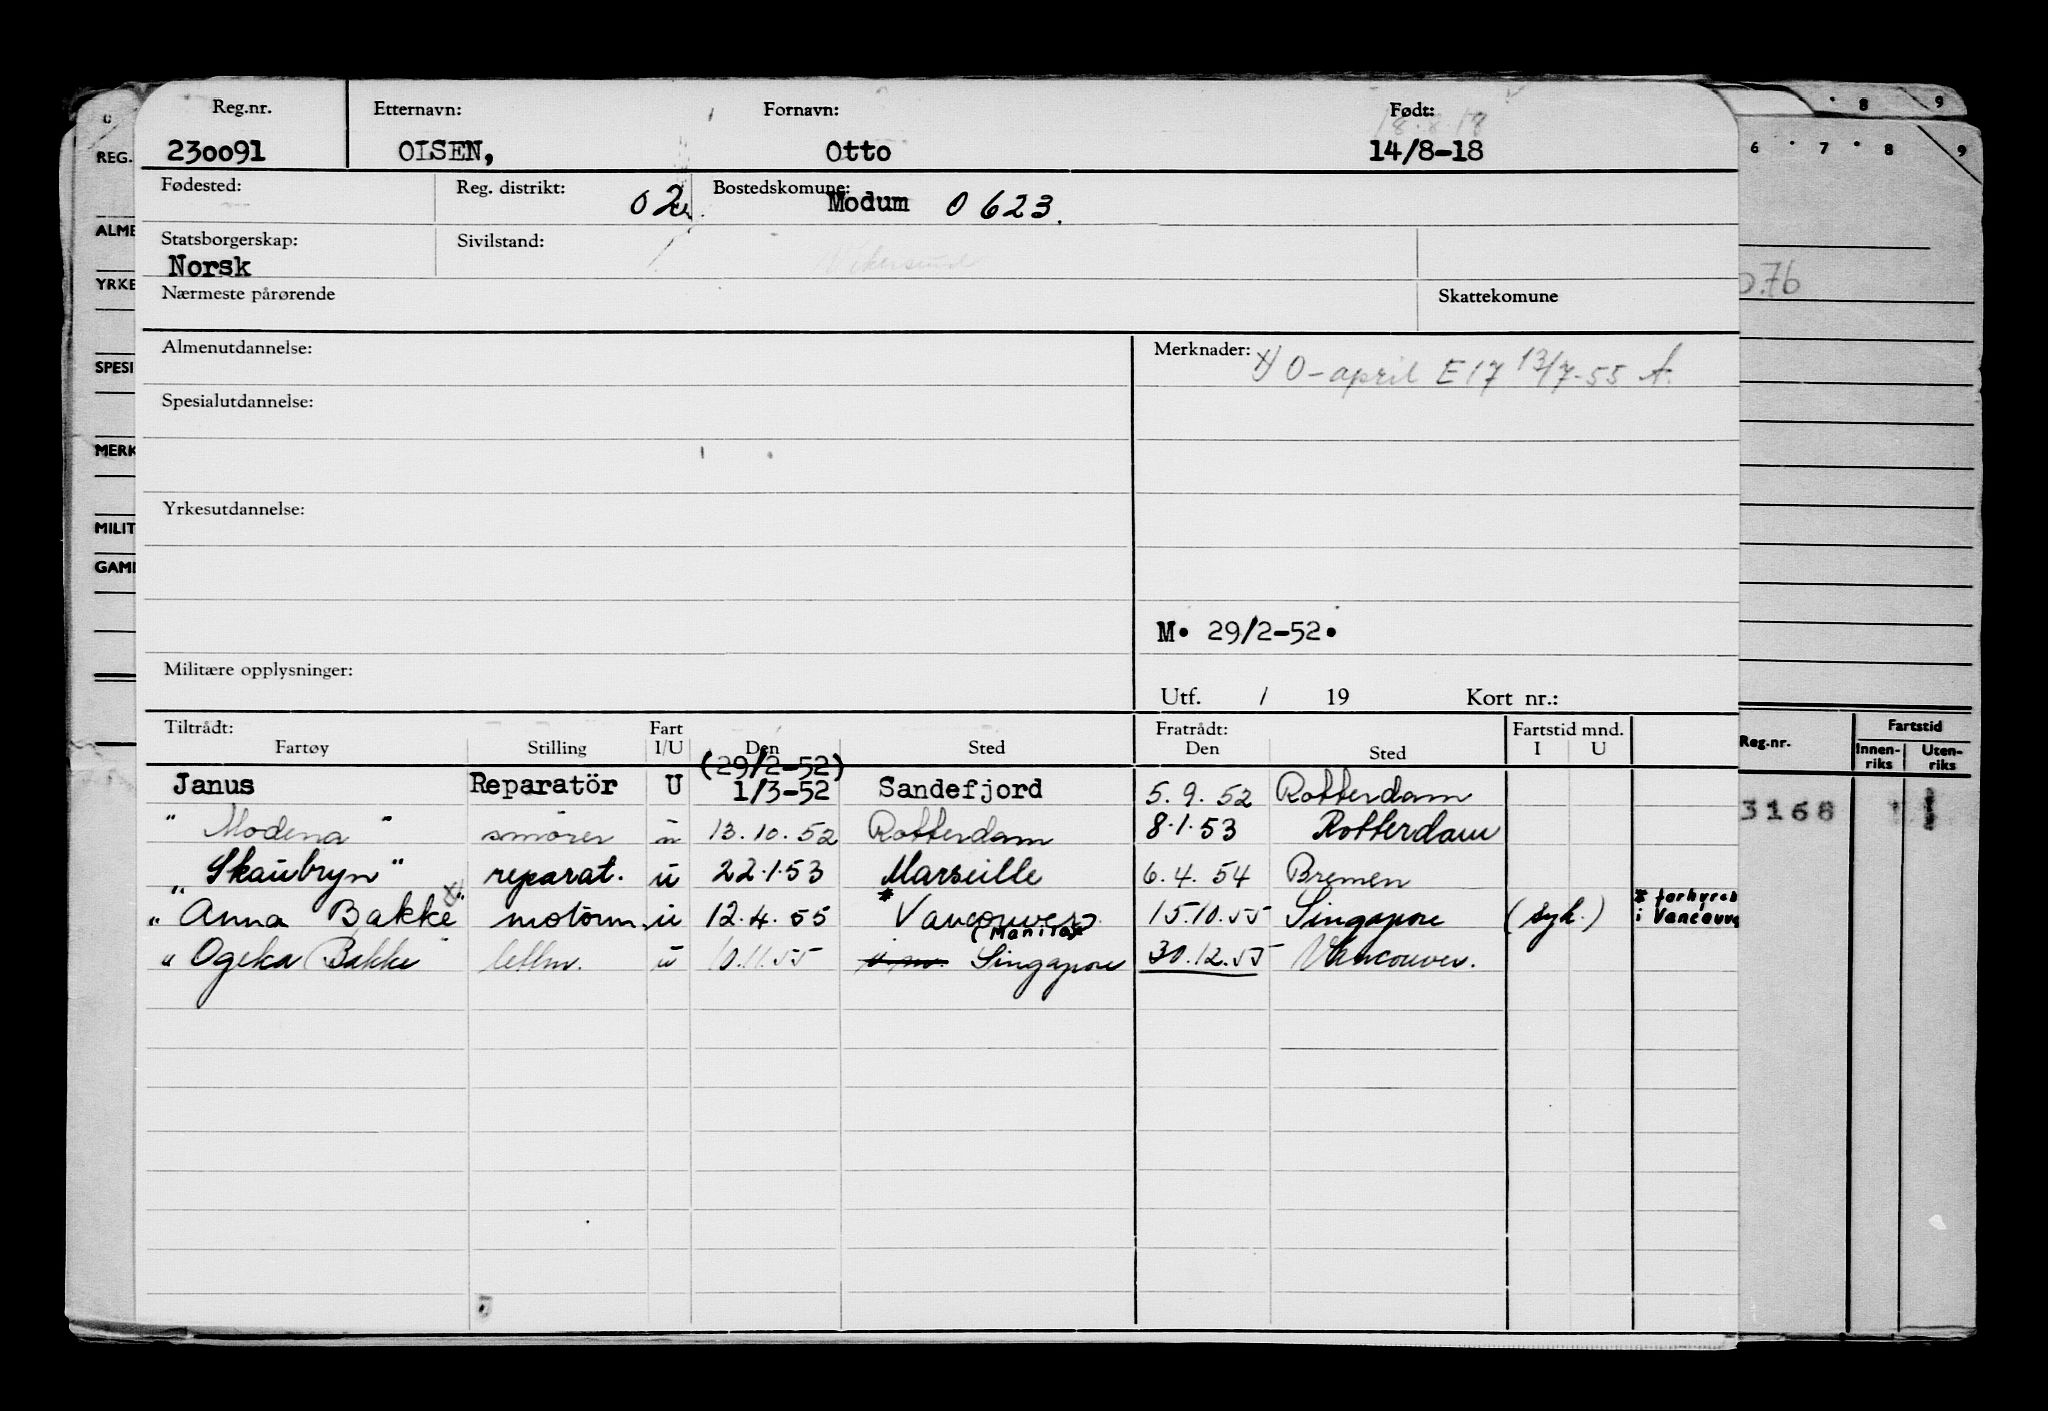 Reg.nr. Etternavn: Fornavn: Født:
230091 OLSEN, Otto 14/8-18
Fødested: Reg. distrikt: 02 Bostedskomune: Modum 0623.
Statsborgerskap: Sivilstand:
Norsk
Nærmeste pårørende Skattekomune
Almenutdannelse: Merknader: x) O-april E17 13/7-55 A.
Spesialutdannelse:
Yrkesutdannelse:
M. 29/2-52.
Militære opplysninger:
Utf. / 19 Kort nr.:
Tiltrådt: Fart Fratrådt: Fartstid mnd.
Fartøy Stilling I/U Den Sted Den Sted I U
(29/2-52)
Janus Reparatör U 1/3-52 Sandefjord 5.9.52 Rotterdam
" Modena " smører u 13.10.52 Rotterdam 8.1.53 Rotterdam
" Skaubryn " reparat. u 22.1.53 Marseille 6.4.54 Bremen
" Anna Bakke x) " motorm. u 12.4.55 * Vancouver 15.10.55 Singapore (syk.) * forhyres
(Manila) i Vancouve
" Ogeka Bakke " lettm. u 10.11.55 Singapore 30.12.55 Vancouver.
REG.
ALME
YRKE
SPESI
MERK
MILIT
GAML
8 9
6 7 8 9
0.76
Reg.nr. Fartstid
Innen-riks Uten-riks
3168